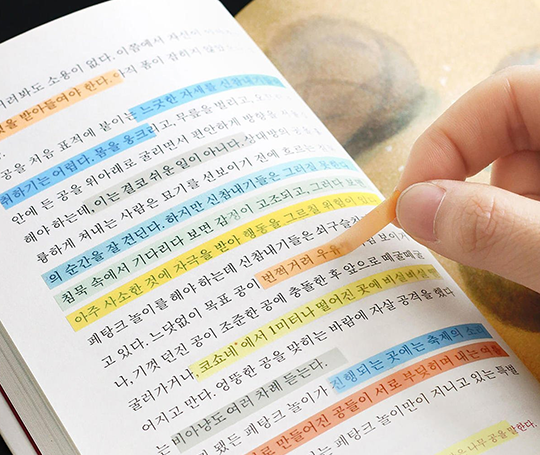 러봐도 소용이 없다. 이쯤에서 자신이
을 받아들여야 한다. 아직 몸이 잡히지 않았
공을 처음 표적에 붙이는 느긋한 자세를 신참내기
취하기는 어렵다. 몸을 웅크리고, 무릎을 벌리고,
안에 든 공을 위아래로 굴리면서 편안하게 방향을
해야 하는데, 이는 결코 쉬운 일이 아니다. 상대방의
륭하게 쳐내는 사람은 묘기를 선보이기 전에 흐르는
의 순간을 잘 견딘다. 하지만 신참내기들은 그러질 못한다.
침묵 속에서 기다리다 보면 감정이 고조되고, 그러다 보면
아주 사소한 것에 자극을 받아 행동을 그르칠 위험이
페탕크 놀이를 해야 하는데 신참내기들은 쇠구슬
고 있다. 느닷없이 목표 공이 번쩍거려 우유 보이기
나, 기껏 던진 공이 조준한 공에 충돌한 후 앞으로 떼굴떼굴
굴러가거나, 코쇼네*에서 1미터나 떨어진 곳에 비실비실
어지고 만다. 엉뚱한 공을 맞히는 바람에 자살 공격을 했다
는 비아냥도 여러 차례 듣는다.
됐든 페탕크 놀이가 진행되는 곳에는 축제의
로 만들어진 공들이 서로 부딪히며 내는
는 페탕크 놀이만이 지니고 있는 특별
나무 공을 말한다.